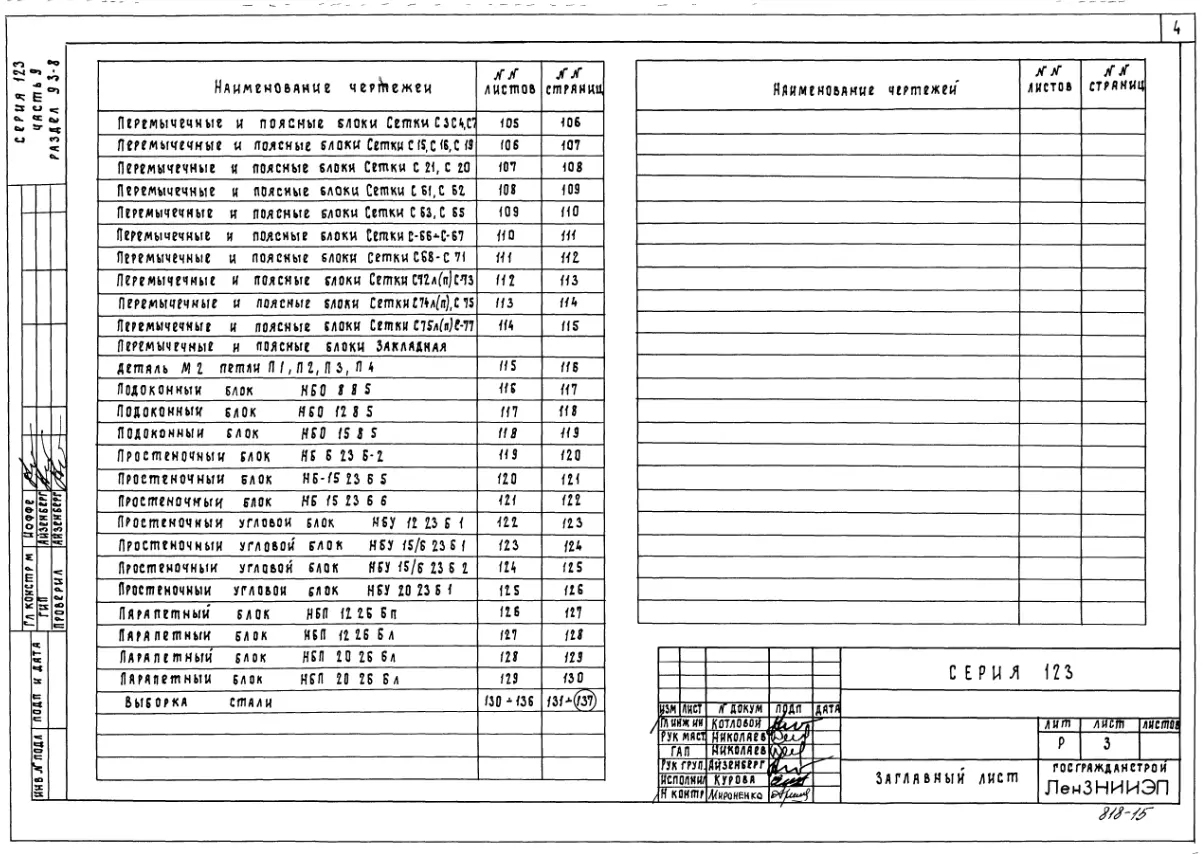 4
СЕРИЯ 123
ЧАСТЬ 9
РАЗДЕЛ 9.3-8
Наименование чертежей
№№ листов
№№ страниц
Перемычечные и поясные блоки Сетки С3С4,С7 105 106
Перемычечные и поясные блоки Сетки С15, С16, С19 106 107
Перемычечные и поясные блоки Сетки С 21, С 20 107 108
Перемычечные и поясные блоки Сетки С 61, С 62 108 109
Перемычечные и поясные блоки Сетки С 63, С 65 109 110
Перемычечные и поясные блоки Сетки С-66÷С-67 110 111
Перемычечные и поясные блоки Сетки С68-С 71 111 112
Перемычечные и поясные блоки Сетки С72л(п)С-73 112 113
Перемычечные и поясные блоки Сетки С74л(п), С 75 113 114
Перемычечные и поясные блоки Сетки С75л(п)С-77 114 115
Перемычечные и поясные блоки Закладная
деталь М2 петли П1, П2, П3, П4 115 116
Подоконный блок НБО 8 8 5 116 117
Подоконный блок НБО 12 8 5 117 118
Подоконный блок НБО 15 8 5 118 119
Простеночный блок НБ 6 23 6-2 119 120
Простеночный блок НБ-15 23 6 5 120 121
Простеночный блок НБ 15 23 6 6 121 122
Простеночный угловой блок НБУ 12 23 6 1 122 123
Простеночный угловой блок НБУ 15/6 23 6 1 123 124
Простеночный угловой блок НБУ 15/6 23 6 2 124 125
Простеночный угловой блок НБУ 20 23 6 1 125 126
Парапетный блок НБП 12 26 6п 126 127
Парапетный блок НБП 12 26 6л 127 128
Парапетный блок НБП 20 26 6л 128 129
Парапетный блок НБП 20 26 6л 129 130
Выборка стали 130÷136 131÷137
Наименование чертежей
№№ листов
№№ страниц
Гл констр м Иоффе
ГИП Айзенберг
Проверил Айзенберг
Инв.№ подл Подп и дата
Изм Лист № докум Подп Дата
Гл инж ин Котловой
Рук маст Николаев
ГАП Николаев
Рук груп. Айзенберг
Исполнил Курова
Н контр Мироненко
СЕРИЯ 123
Заглавный лист
Лит Лист Листов
Р 3
ГОСГРАЖДАНСТРОЙ
ЛенЗНИИЭП
818-15